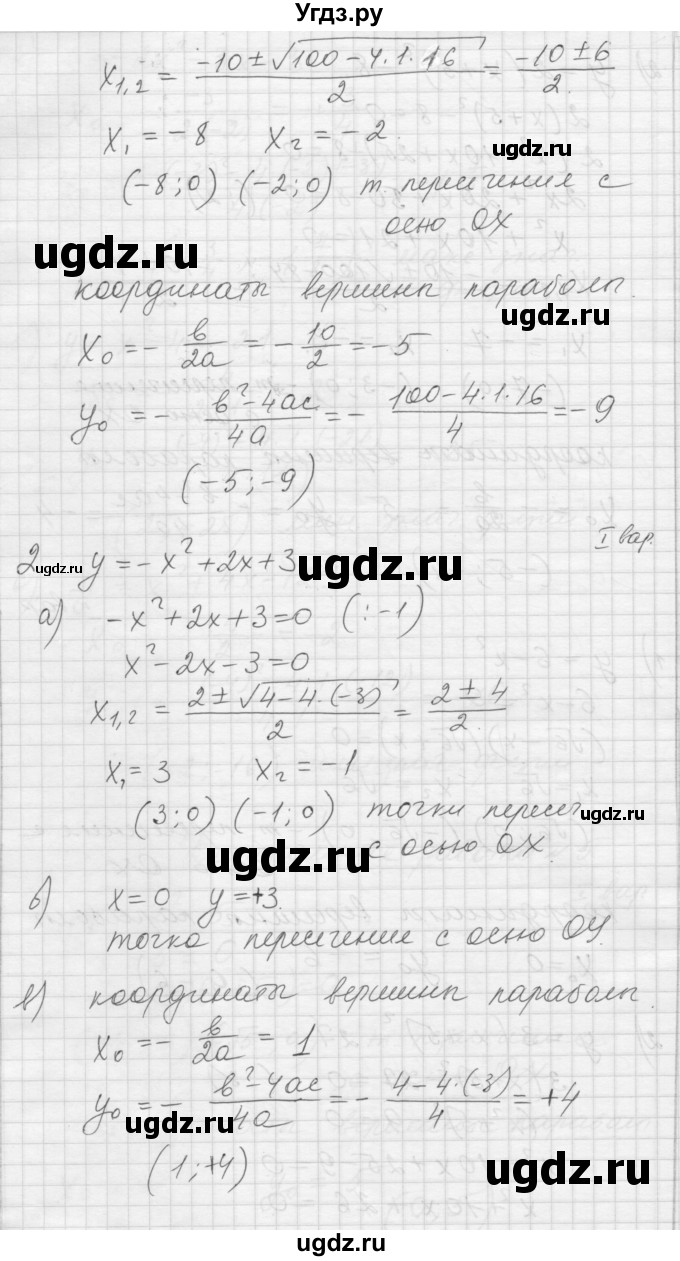 Угдз.ру
x₁,₂ = (-10 ± √(100 - 4·1·16)) / 2 = (-10 ± 6) / 2.
x₁ = -8 x₂ = -2.
ugdz.ru
(-8; 0) (-2; 0) т. пересечения с
осью OX
ugdz.ru
координаты вершины параболы.
x₀ = - в/2a = - 10/2 = -5
ugdz.ru
y₀ = - (в² - 4ac)/4a = - (100 - 4·1·16)/4 = -9
(-5; -9)
I вар.
2. y = -x² + 2x + 3
ugdz.ru
ugdz.ru
а) -x² + 2x + 3 = 0 (: -1)
x² - 2x - 3 = 0
x₁,₂ = (2 ± √(4 - 4·(-3))) / 2 = (2 ± 4) / 2.
x₁ = 3 x₂ = -1
(3; 0) (-1; 0) точки пересеч
ugdz.ru
с осью OX.
ugdz.ru
б) x = 0 y = +3.
точка пересечение с осью OY.
в) координаты вершины параболы.
x₀ = - в/2a = 1
y₀ = - (в² - 4ac)/4a = - (4 - 4·(-3))/4 = +4
ugdz.ru
(1; +4)
ugdz.ru
ugdz.ru